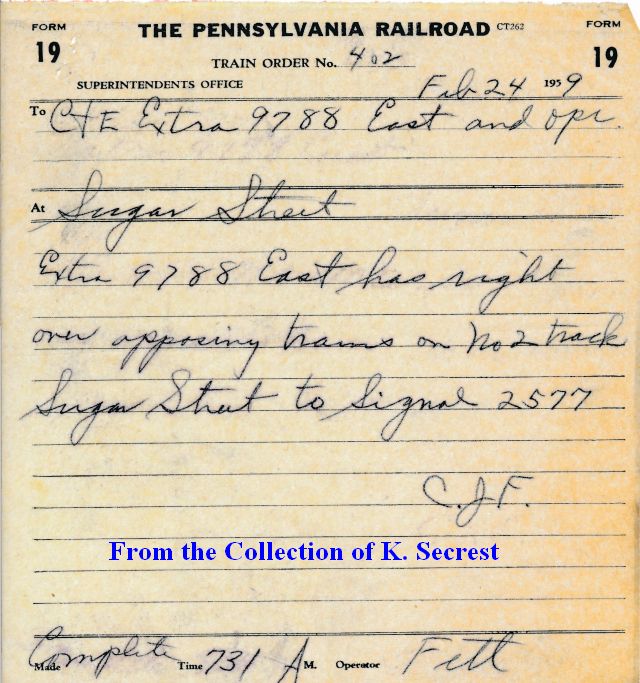 FORM 19 THE PENNSYLVANIA RAILROAD CT262 FORM 19
TRAIN ORDER No. 402
SUPERINTENDENTS OFFICE Feb 24 1959
To C&E Extra 9788 East and opr.
At Sugar Street
Extra 9788 East has right
over opposing trains on No 2 track
Sugar Street to Signal 2577
C.J.F.
From the Collection of K. Secrest
Made Complete Time 731 A M. Operator Fett